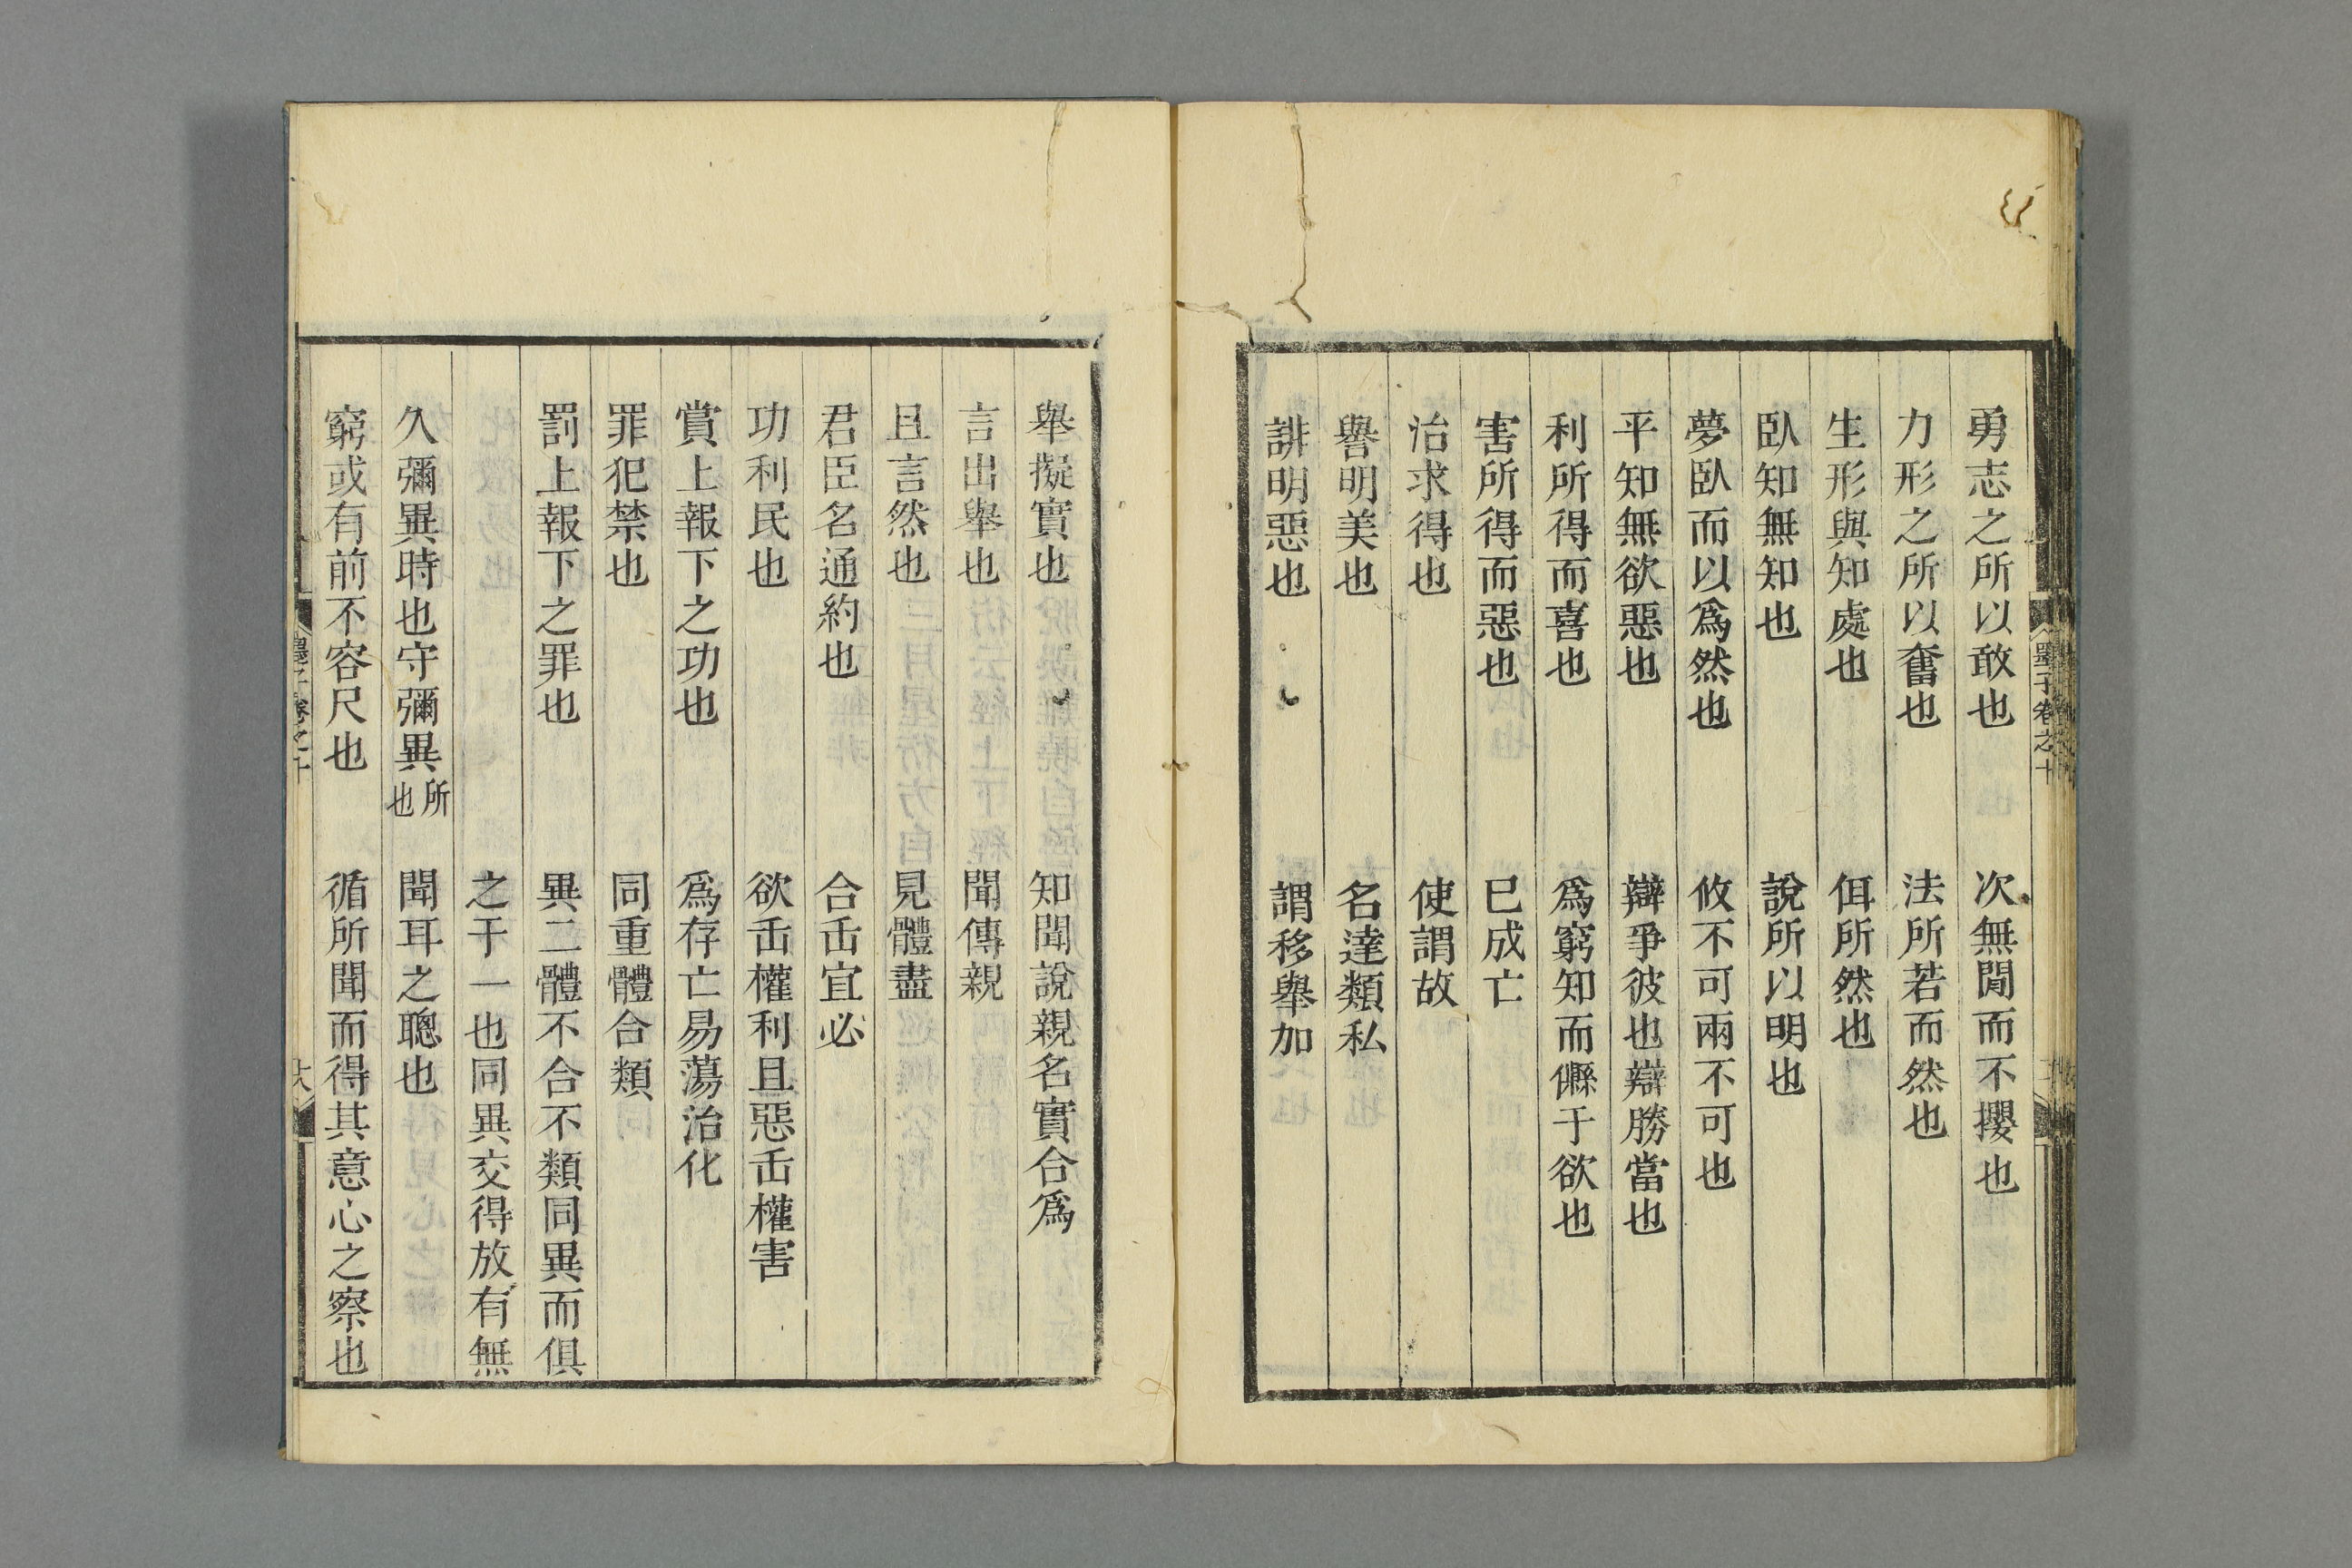 勇志之所以敢也　次無閒而不攖也
力形之所以奮也　法所若而然也
生形與知處也　佴所然也
臥知無知也　說所以明也
夢臥而以爲然也　攸不可兩不可也
平知無欲惡也　辯爭彼也辯勝當也
利所得而喜也　爲窮知而縣于欲也
害所得而惡也　已成亡
治求得也　使謂故
譽明美也　名達類私
誹明惡也　謂移舉加
墨子卷之十
舉擬實也　知聞說親名實合爲
言出舉也　聞傳親
且言然也　見體盡
君臣名通約也　合缶宜必
功利民也　欲缶權利且惡缶權害
賞上報下之功也　爲存亡易蕩治化
罪犯禁也　同重體合類
罰上報下之罪也　異二體不合不類同異而俱
之于一也同異交得放有無
久彌異時也守彌異所也　聞耳之聰也
窮或有前不容尺也　循所聞而得其意心之察也
墨子卷之十